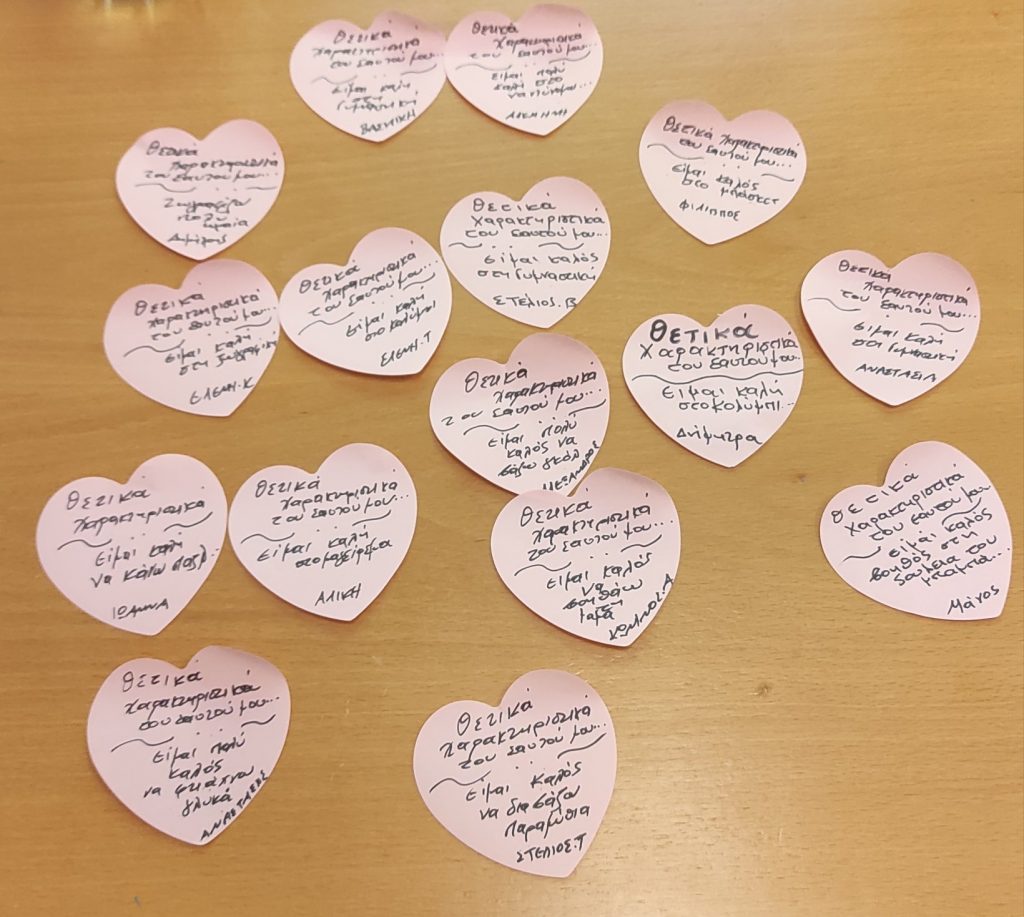 Θετικά
Χαρακτηριστικά
του εαυτού μου...
Είμαι καλή
στη
γυμναστική
ΒΑΣΙΛΙΚΗ
Θετικά
Χαρακτηριστικά
του εαυτού μου...
Είμαι πολύ
καλή στο
ΑΛΚΜΗΝΗ
Θετικά
Χαρακτηριστικά
του εαυτού μου...
Ζωγραφίζω
πολύ
ωραία
Θετικά Χαρακτηριστικά
του εαυτού μου...
Είμαι καλός
στο μπάσκετ
ΦΙΛΙΠΠΟΣ
Θετικά
Χαρακτηριστικά
του εαυτού μου...
Είμαι καλός
στη γυμναστική
ΣΤΕΛΙΟΣ.Β
Θετικά
Χαρακτηριστικά
του εαυτού μου...
είμαι καλή
στο κολύμπι
ΕΛΕΝΗ.Τ
Θετικά
Χαρακτηριστικά
του εαυτού μου...
είμαι καλή
στη ζωγραφική
ΕΛΕΝΗ.Κ
Θετικά
Χαρακτηριστικά
του εαυτού μου...
Είμαι καλή
στη γυμναστική
ΑΝΑΣΤΑΣΙΑ
Θετικά
Χαρακτηριστικά
του εαυτού μου...
Είμαι καλή
στο κολύμπι...
Δήμητρα
Θετικά
Χαρακτηριστικά
του εαυτού μου...
Είμαι πολύ
καλός να
βάζω γκολ
ΑΛΕΞΑΝΔΡΟΣ
Θετικά
Χαρακτηριστικά
Είμαι καλή
να κάνω παζλ..
ΙΩΑΝΝΑ
Θετικά
Χαρακτηριστικά
του εαυτού μου...
Είμαι καλή
στο μαγείρεμα
ΑΛΙΚΗ
Θετικά
Χαρακτηριστικά
του εαυτού μου...
Είμαι καλός
να
βοηθάω
Θετικά
Χαρακτηριστικά
του εαυτού μου
είμαι καλός
βοηθός στη
δουλεια του
μπαμπα...
Μάνος
Θετικά
Χαρακτηριστικά
του εαυτού μου...
Είμαι πολύ
καλός
να φτιάχνω
γλυκά
ΑΝΑΣΤΑΣΗΣ
Θετικά
Χαρακτηριστικά
του εαυτού μου...
Είμαι καλός
να διαβάζω
Παραμύθια
ΣΤΕΛΙΟΣ.Τ